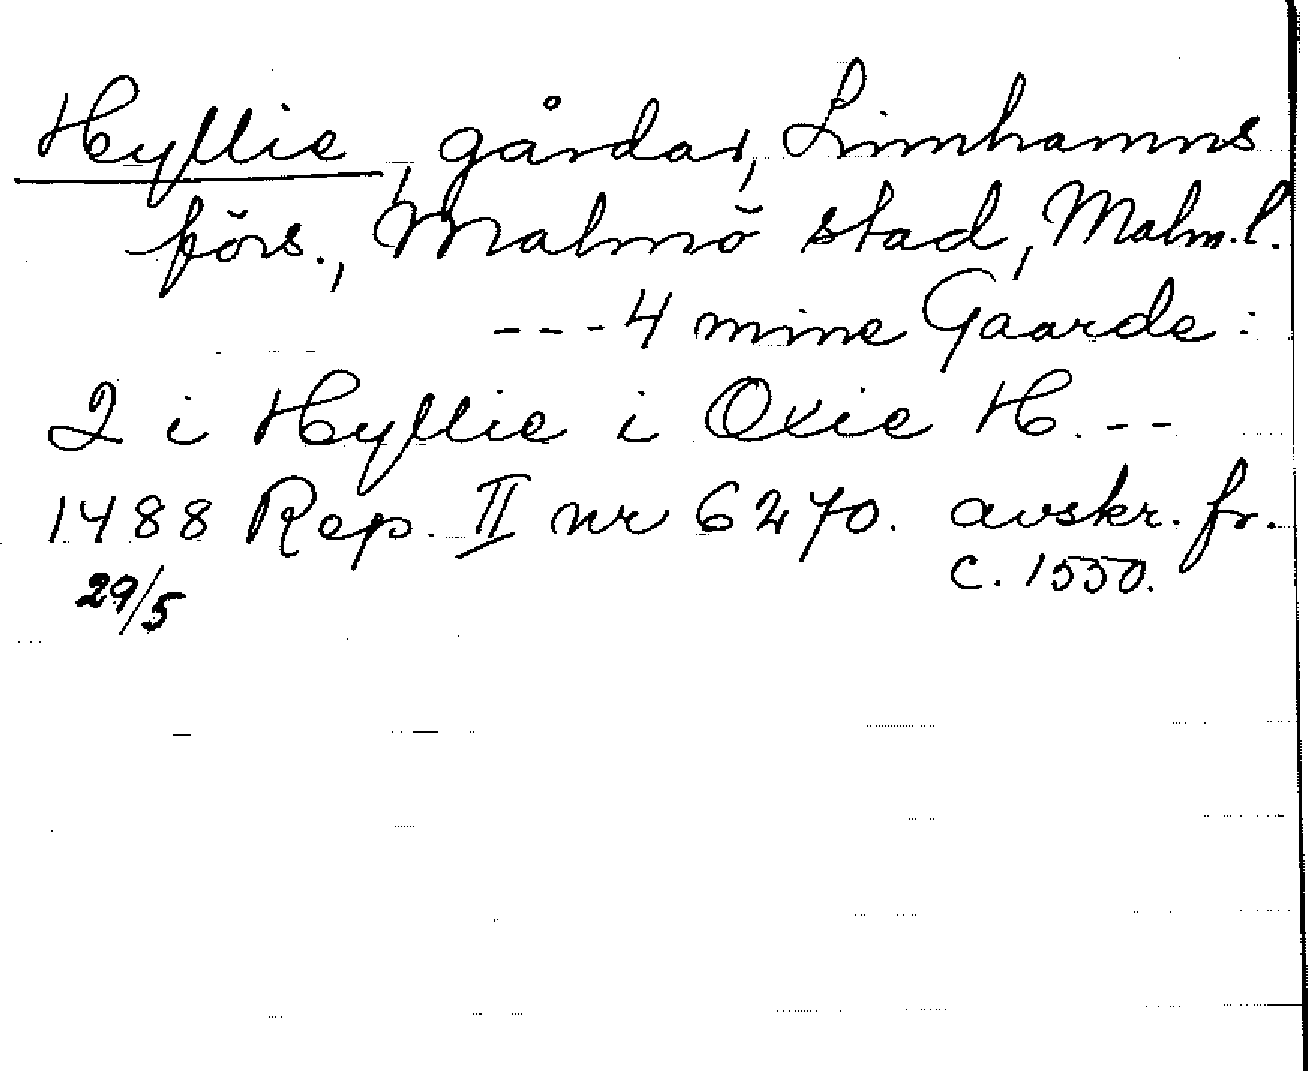 Hyllie, gårdar, Limhamns
förs., Malmö stad, Malm.l.
---4 mine Gaarde:
2 i Hyllie i Oxie H.--
1488 Rep. II nr 6270. avskr. fr.
29/5 c. 1550.